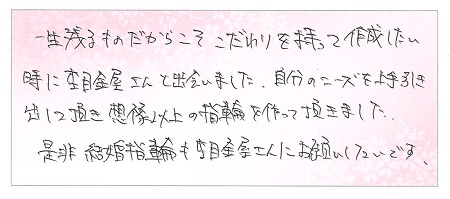 一生残るものだからこそこだわりを持って作成したい
時に杢目金屋さんと出会いました。自分のニーズを上手引き
出して頂き想像以上の指輪を作って頂きました。
是非結婚指輪も杢目金屋さんにお願いしたいです。